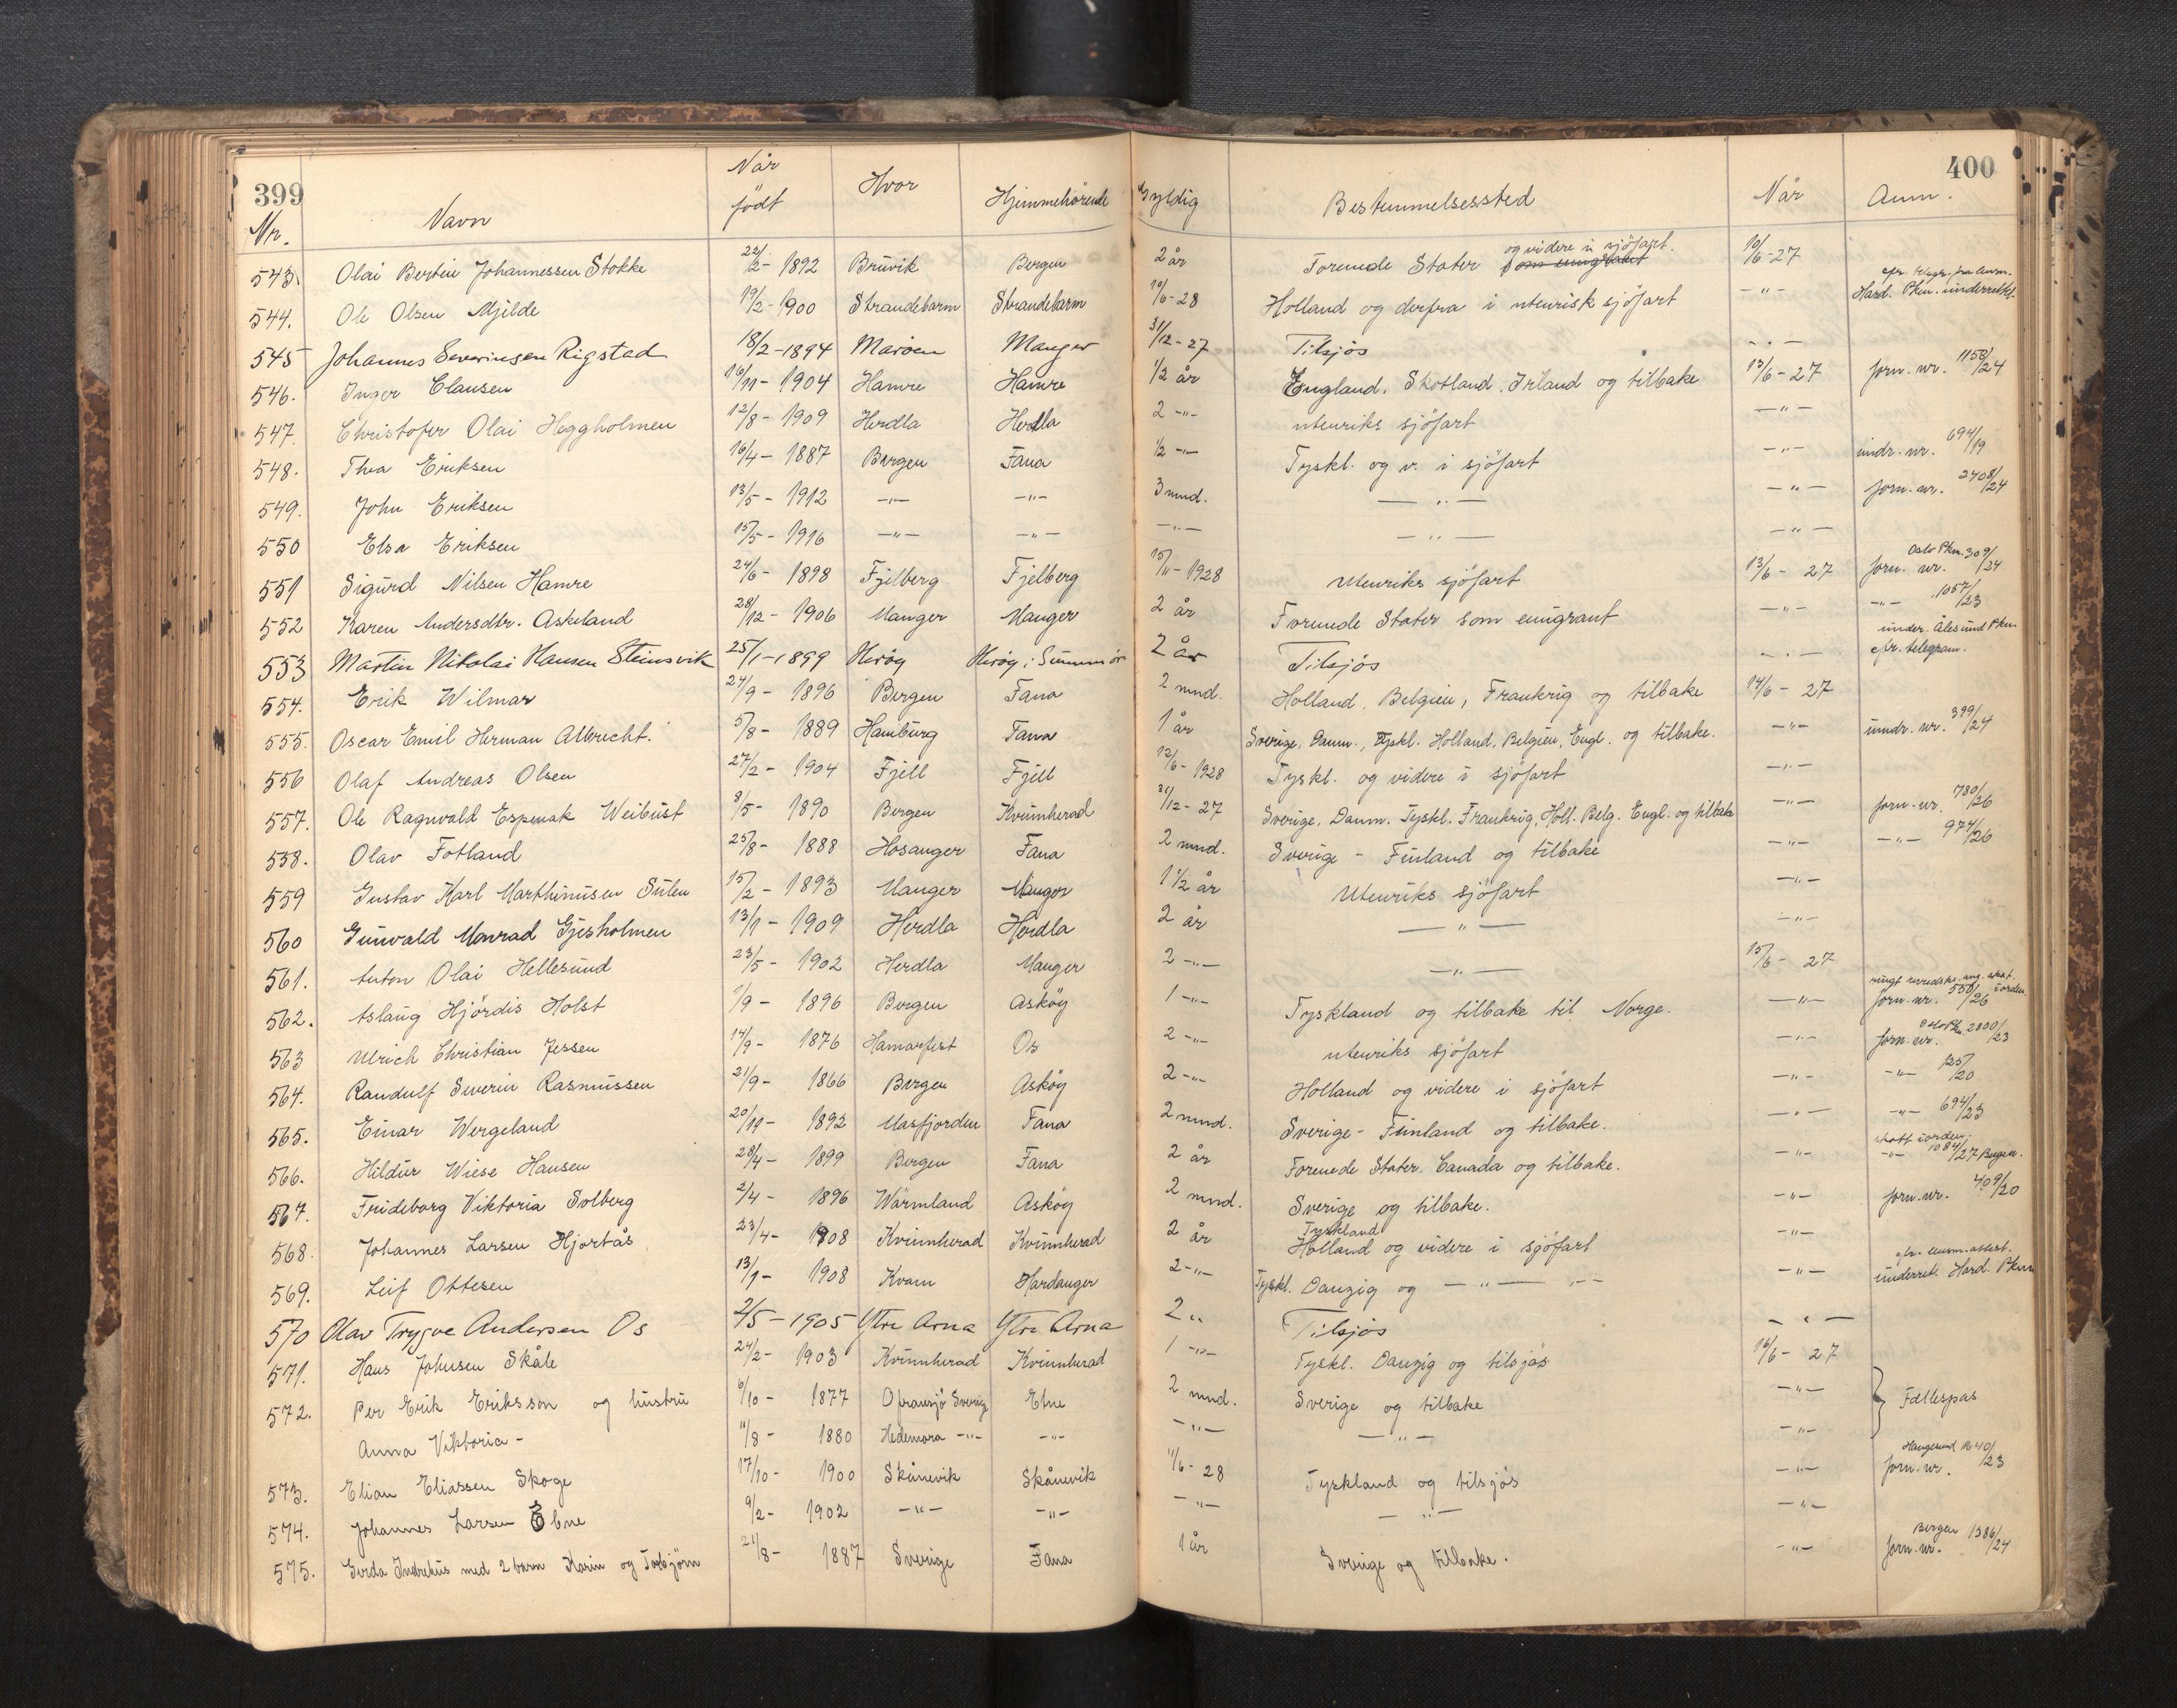 399 400
Nr. Navn Når født Hvor Hjemmehörende Gyldig Bestemmelsessted Når Anm.
543. Olai Bertin Johannessen Stokke 22/2 - 1892 Bruvik Bergen 2 år Forenede Stater som emigrant og videre i sjöfart. 10/6-27
544. Ole Olsen Mjelde 19/2-1900 Strandebarm Strandebarm 10/6-28 Holland og derfra i utenrisk sjöfart -"- efr. telegr. fra Anm. Hard. Pkm. underrettet.
545 Johannes Severinsen Rigstad 18/2-1894 Maröen Manger 31/12-27 Tilsjös -"-
546. Inger Clausen 16/11-1904 Hamre Hamre 1/2 år England, Skotland, Irland og tilbake 13/6-27 forn. nr. 1158/24
547. Christofer Olai Heggholmen 12/8-1909 Herdla Herdla 2 -"- utenriks sjöfart -"-
548. Thea Eriksen 16/4-1887 Bergen Fana 1/2 -"- Tyskl. og v. i sjöfart -"- undr. nr. 694/19
549. John Eriksen 13/5-1912 -"- -"- 3 mnd. -"- -"- forn. nr. 2408/24
550 Elsa Eriksen 15/5-1916 -"- -"- -"- -"- -"-
551 Sigurd Nilsen Hamre 24/6-1898 Fjelberg Fjelberg 15/11-1928 Utenriks sjöfart 13/6-27 forn. nr. Oslo Pkm. 309/24
552 Karen Andersdtr. Askeland 28/12-1906 Manger Manger 2 år Forenede Stater som emigrant -"- -"- 1057/23
553 Martin Nikolai Hansen Steinsvik 25/1-1899 Heröy Heröy i Sunnmör 2 år Tilsjös -"- under. Ålesund Pkm. efr. telegram.
554. Erik Wilmar 24/9-1896 Bergen Fana 2 mnd. Holland, Belgien, Frankrig og tilbake 14/6-27
555. Oscar Emil Herman Albrecht. 5/8-1889 Hamburg Fana 1 år Sverige, Danm., Tyskl. Holland, Belgien, Engl. og tilbake. -"- undr. nr. 399/24
556 Olaf Andreas Olsen 27/2-1904 Fjell Fjell 12/6-1928 Tyskl. og videre i sjöfart -"-
557. Ole Ragnvald Espevak Weibust 8/5-1890 Bergen Kvinnherad 31/12-27 Sverige, Danm. Tyskl. Frankrig, Holl. Belg. Engl. og tilbake -"- forn. nr. 780/26
558. Olav Fotland 25/8-1888 Hosanger Fana 2 mnd. Sverige - Finland og tilbake -"- -"- 974/26
559 Gustav Karl Marthinusen Sulen 15/2-1893 Manger Manger 1 1/2 år Utenriks sjöfart -"-
560 Gunvald Monrad Gjesholmen 13/1-1909 Herdla Herdla 2 år -"- -"-
561. Anton Olai Hellesund 23/5-1902 Herdla Manger 2 -"- -"- 15/6-27
562. Aslaug Hjördis Holst 1/9-1896 Bergen Asköy 1 -"- Tyskland og tilbake til Norge. -"- forn. nr. 550/26
563 Ulrich Christian Jessen 14/9-1876 Hamarfest Os 2 -"- utenriks sjöfart -"- forn. nr. Oslo Pk. 2800/23
564. Randulf Severin Rasmussen 21/9-1866 Bergen Asköy 2 -"- Holland og videre i sjöfart -"- -"- 125/20
565. Einar Wergeland 20/11-1892 Masfjorden Fana 2 mnd. Sverige - Finland og tilbake. -"- -"- 694/23
566. Hildur Wiese Hansen 28/4-1899 Bergen Fana 2 år Forenede Stater. Canada og tilbake. -"- skatt iorden. -"- 1084/27 Bergen.
567. Frideborg Viktoria Solberg 2/4-1896 Wärmland Asköy 2 mnd. Sverige og tilbake. -"- forn. nr. 409/20
568. Johannes Larsen Hjortås 23/4-1908 Kvinnherad Kvinnherad 2 år Tyskland Holland og videre i sjöfart -"-
569. Leif Ottesen 13/1-1908 Kvam Hardanger 2 -"- Tyskl. Danzig og -"- -"- -"- efr. anm. attest. underret. Hard. Pkm
570 Olav Trygve Andersen Os 2/5-1905 Ytre Arna Ytre Arna 2 " Tilsjös -"-
571. Hans Johnsen Skåle 24/2-1903 Kvinnherad Kvinnherad 1 -"- Tyskl. Danzig og tilsjös 16/6-27
572. Per Erik Eriksson og hustru 6/10-1877 Ofransjö Sverige Etne 2 mnd. Sverige og tilbake -"- } Fællespas
Anna Viktoria - 11/8-1880 Hedemora -"- -"- -"- -"- -"-
573. Elian Eliassen Skoge 17/10-1900 Skånevik Skånevik 11/6-28 Tyskland og tilsjös -"- forn. nr. Haugesund 1240/23
574. Johannes Larsen Ebne 9/2-1902 -"- -"- -"- -"- -"-
575. Gerda Indrehus med 2 barn Karin og Torbjörn 21/8-1887 Sverige Fana 1 år Sverige og tilbake. -"- forn. nr. Bergen 1386/24